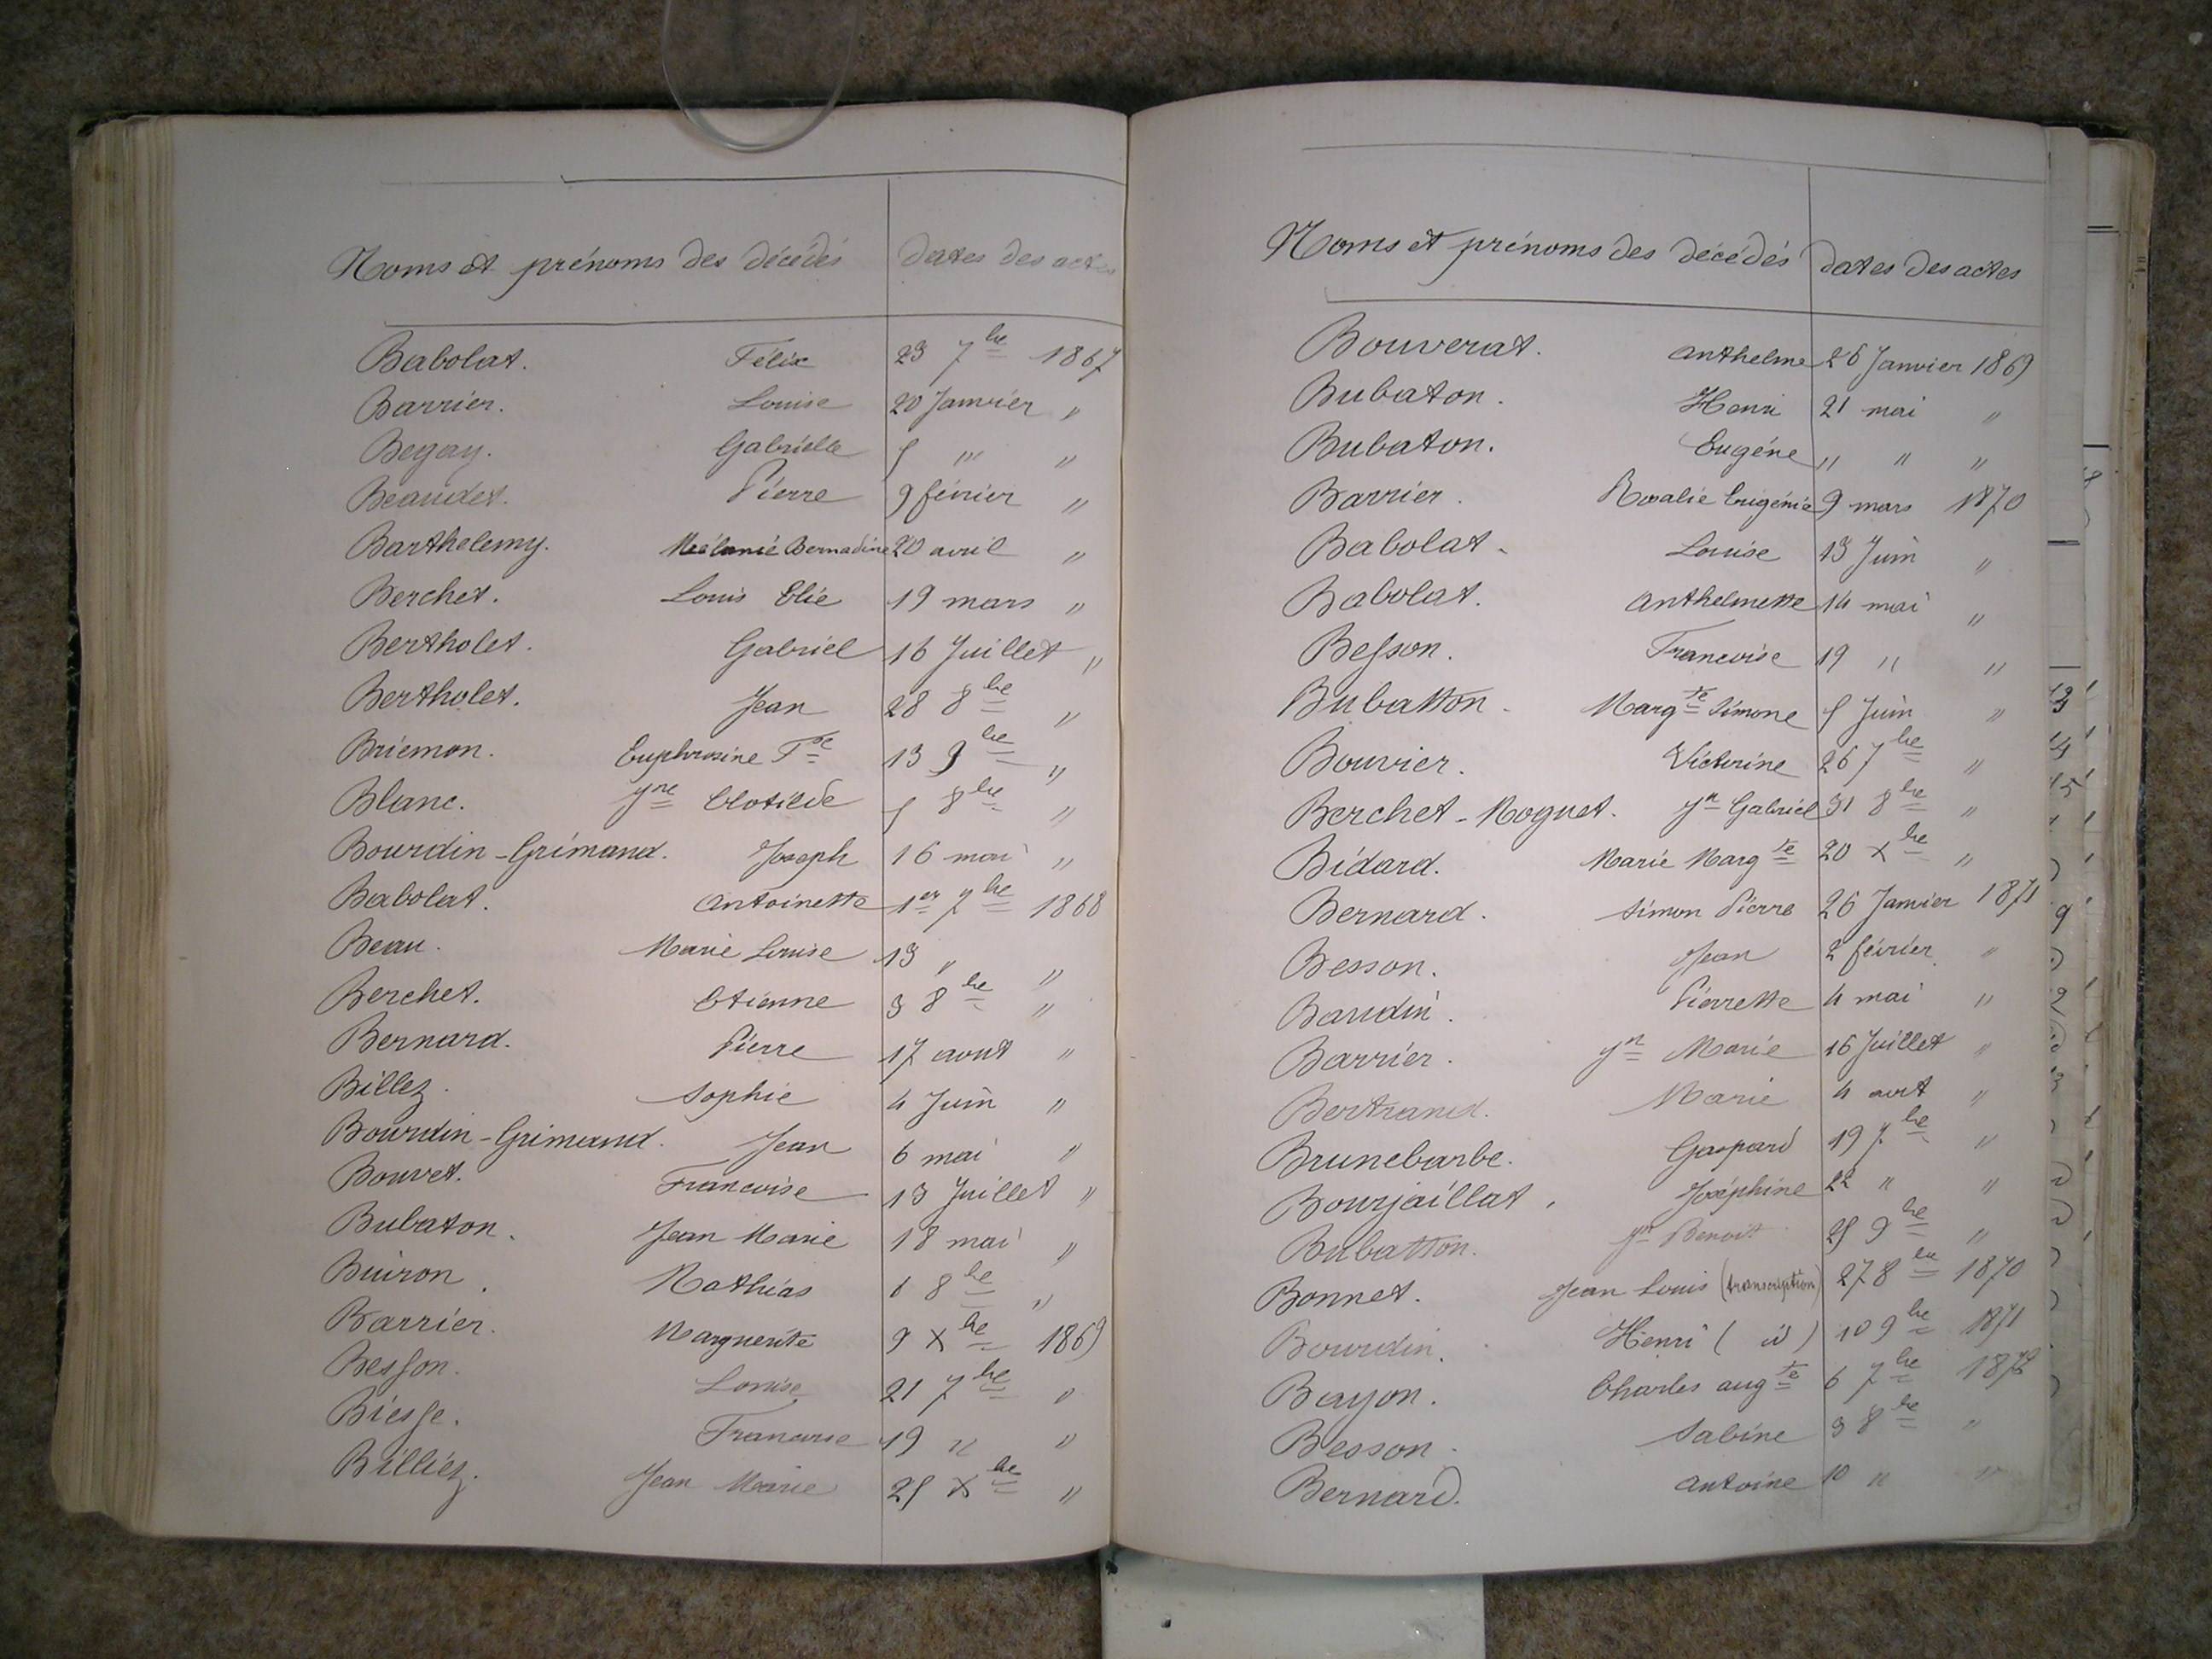 Noms et prénoms des décédés dates des actes
Babolat. Félix 23 7bre 1867
Barrier. Louise 20 Janvier "
Begay. Gabrielle 5 " "
Beaudet. Pierre 9 février "
Barthelemy. Mélanie Bernadine 20 avril "
Berchet. Louis Elie 19 mars "
Bertholet. Gabriel 16 Juillet "
Bertholet. Jean 28 8bre "
Briemon. Euphrosine Fse 13 9bre "
Blanc. Jne Clotilde 5 8bre "
Bourdin-Grimand. Joseph 16 mai "
Babolat. Antoinette 1er 7bre 1868
Beau. Marie Louise 13 " "
Berchet. Etienne 3 8bre "
Bernard. Pierre 17 aout "
Billez. Sophie 4 Juin "
Bourdin-Grimand. Jean 6 mai "
Bouvet. Francoise 13 Juillet "
Bubaton. Jean Marie 18 mai "
Buiron. Mathias 8bre "
Barrier. Marguerite 9 Xbre 1869
Besson. Louise 21 7bre "
Biesse. Francoise 19 " "
Billiez. Jean Marie 25 Xbre "
Noms et prénoms des décédés dates des actes
Bouverat. Anthelme 26 Janvier 1869
Bubaton. Henri 21 mai "
Bubaton. Eugéne " " "
Barrier. Rosalie Eugénie 9 mars 1870
Babolat. Louise 13 Juin "
Babolat. Anthelmette 14 mai "
Besson. Francoise 19 " "
Bubatton. Margte Simone 5 Juin "
Bouvier. Victorine 26 7bre "
Berchet-Roguet. Jn Gabriel 31 8bre "
Bidard. Marie Margte 20 Xbre "
Bernard. Simon Pierre 26 Janvier 1871
Besson. Jean 2 février "
Baudin. Pierrette 4 mai "
Barrier. Jn Marie 16 Juillet "
Bertrand. Marie 4 aout "
Brunebarbe. Gaspard 19 7bre "
Bourjaillat. Joséphine 22 " "
Bubatton. Jn Benoit 25 9bre "
Bonnet. Jean Louis (transcription) 27 8bre 1870
Bourdin. Henri (id) 10 9bre 1871
Bayon. Charles augte 6 7bre 1872
Besson. Sabine 3 8bre "
Bernard. Antoine 10 " "